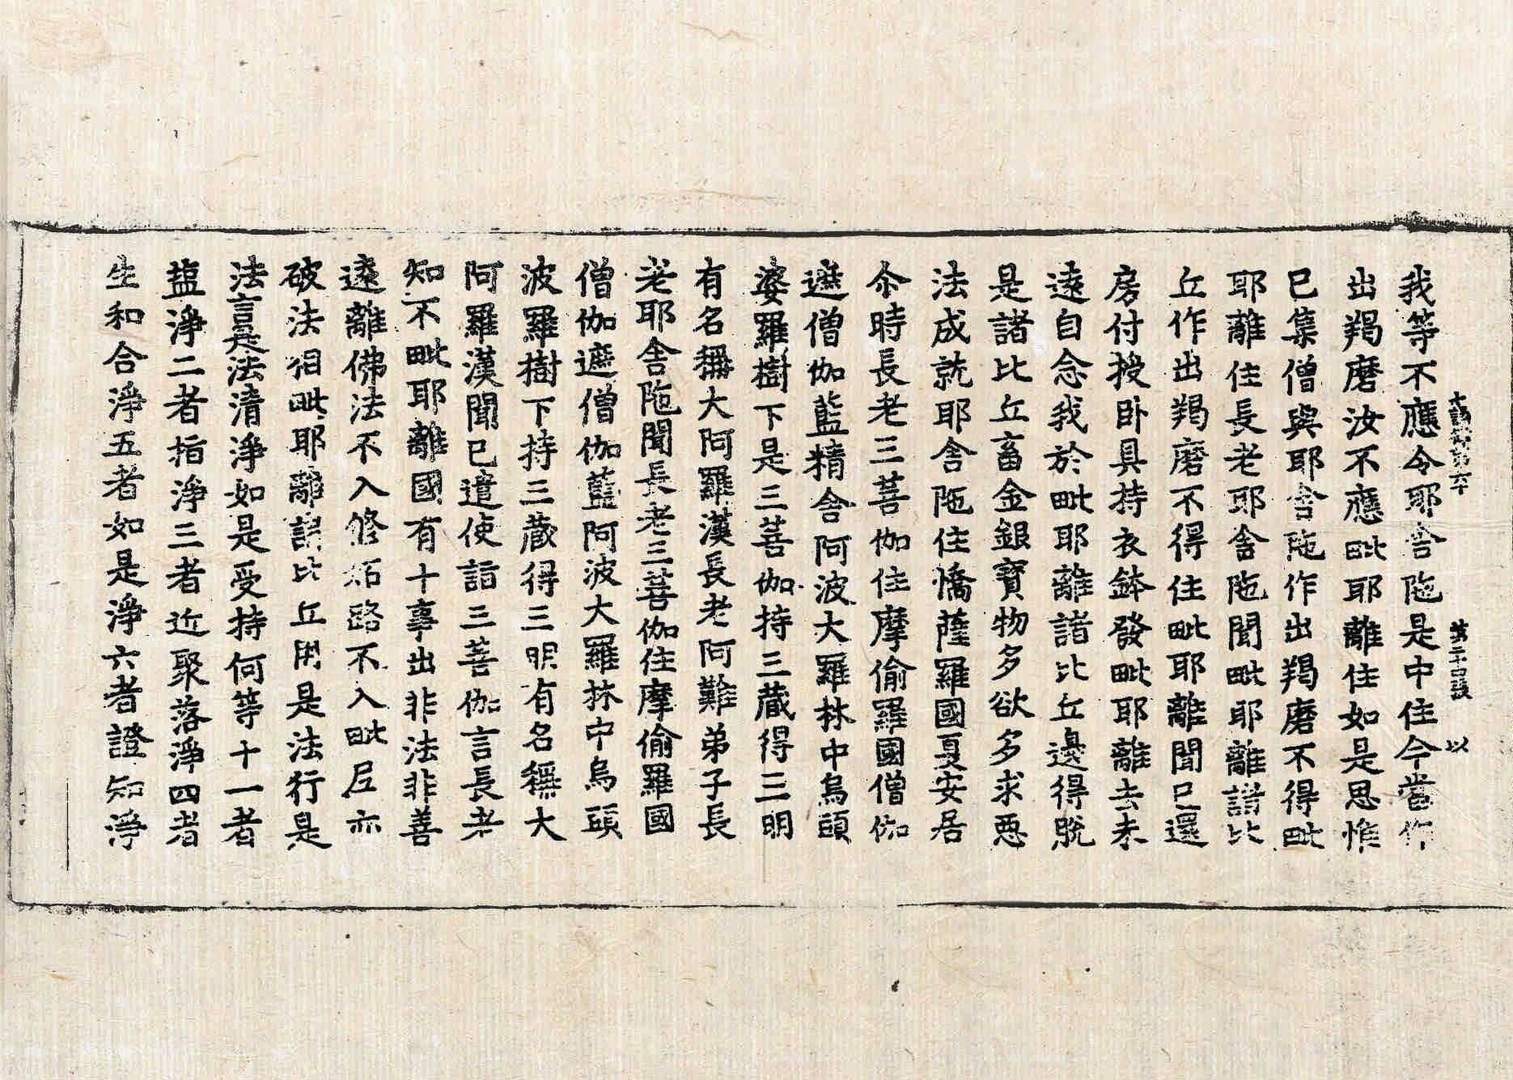 十誦律第六十　第二十四張　以
我等不應令耶舍陁是中住今當作
出羯磨汝不應毗耶離住如是思惟
已集僧與耶舍陁作出羯磨不得毗
耶離住長老耶舍陁聞毗耶離諸比
丘作出羯磨不得住毗耶離聞已還
房付授卧具持衣鉢發毗耶離去未
遠自念我於毗耶離諸比丘邊得脫
是諸比丘畜金銀寶物多欲多求惡
法成就耶舍陁住憍薩羅國夏安居
尒時長老三菩伽住摩偷羅國僧伽
遮僧伽藍精舍阿波大羅林中烏頭
婆羅樹下是三菩伽持三藏得三明
有名稱大阿羅漢長老阿難弟子長
老耶舍陁聞長老三菩伽住摩偷羅國
僧伽遮僧伽藍阿波大羅林中烏頭
波羅樹下持三藏得三明有名稱大
阿羅漢聞已遣使詣三菩伽言長老
知不毗耶離國有十事出非法非善
遠離佛法不入修妬路不入毗尼亦
破法相毗耶離諸比丘用是法行是
法言是法清淨如是受持何等十一者
塩淨二者指淨三者近聚落淨四者
生和合淨五者如是淨六者證知淨